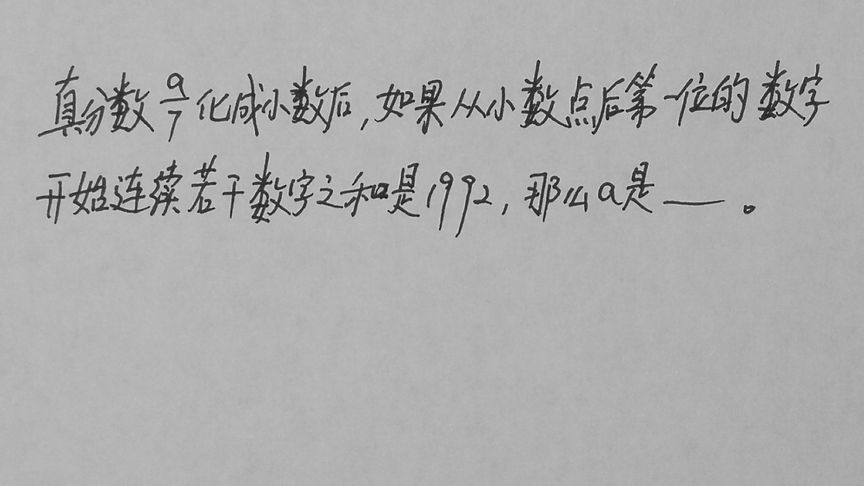 真分数 a/7 化成小数后,如果从小数点后第一位的数字
开始连续若干数字之和是1992,那么a是___。